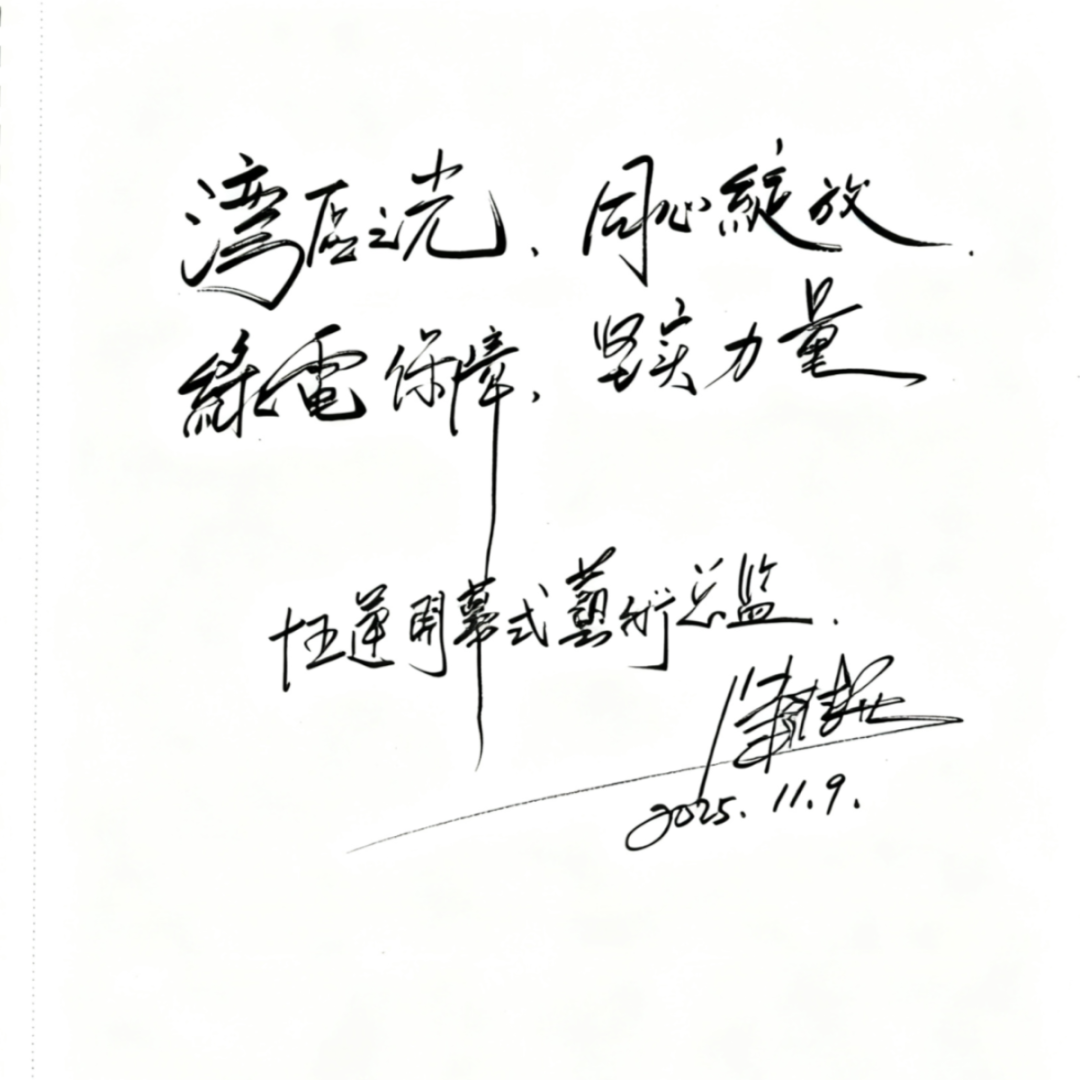 湾區之光、同心綻放.
綠電保障、坚实力量
十五運開幕式藝術总監.
2025.11.9.